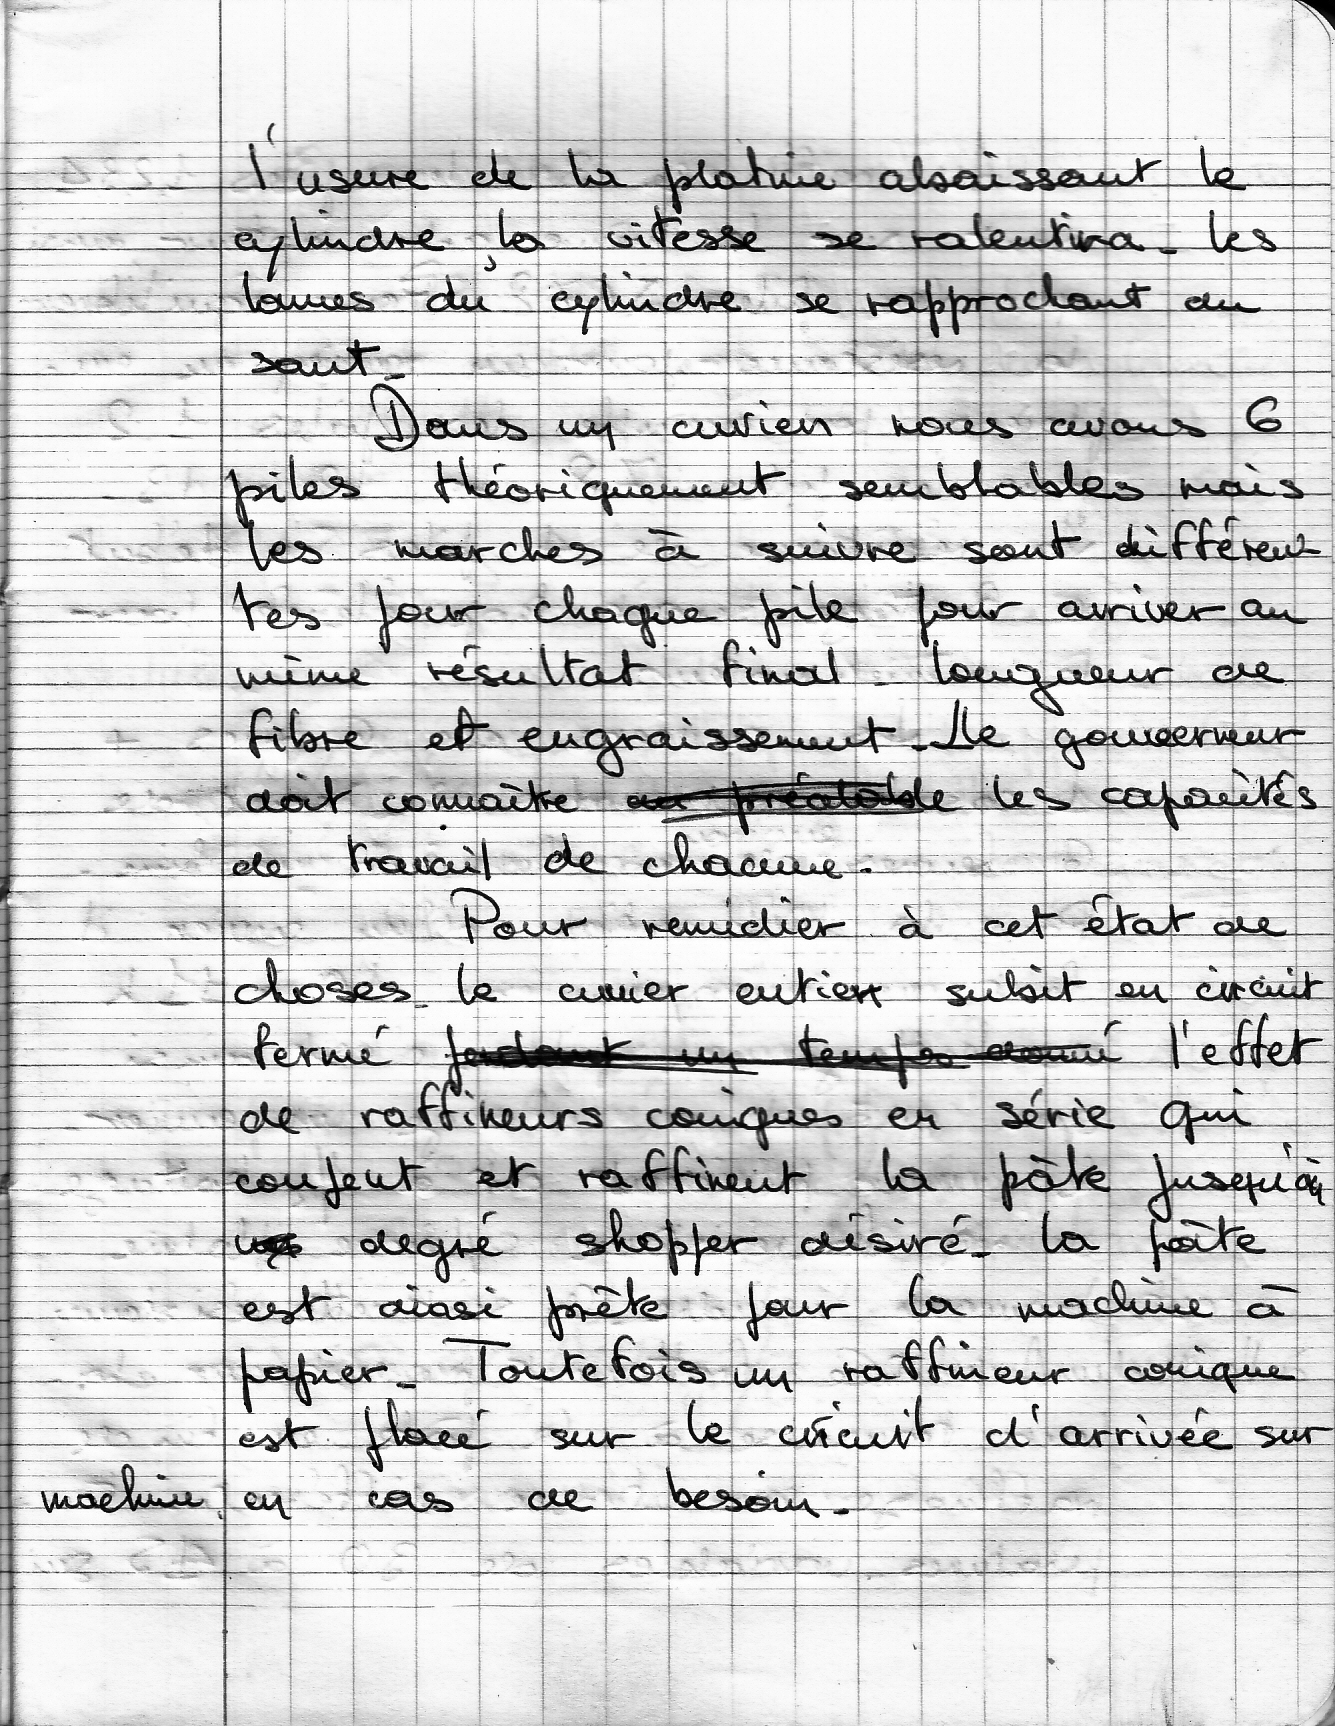 l'usure de la platine abaissant le
cylindre, la vitesse se ralentira. les
lames du cylindre se rapprochant du
saut.
Dans un cuvien nous avons 6
piles théoriquement semblables mais
les marches à suivre sont différen-
tes pour chaque pile pour arriver au
même résultat final. longueur de
fibre et engraissement. Le gouverneur
doit connaître au préalable les capacités
de travail de chacune.
Pour remédier à cet état de
choses. le cuvier entier subit en circuit
fermé pendant un temps donné l'effet
de raffineurs coniques en série qui
coupent et raffinent la pâte jusqu'au
degré shopper désiré. la pâte
est ainsi prête pour la machine à
papier. Toutefois un raffineur conique
est placé sur le circuit d'arrivée sur
machine, en cas de besoin.